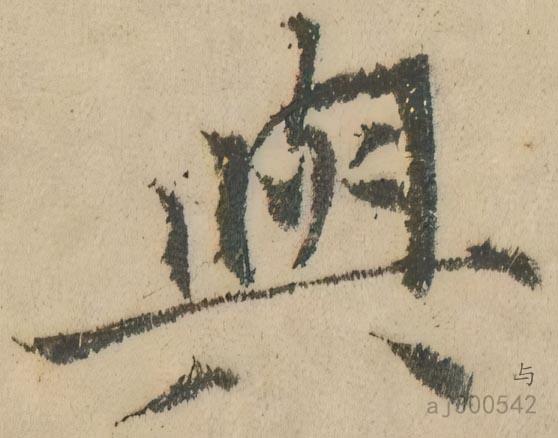 與
与
aj000542